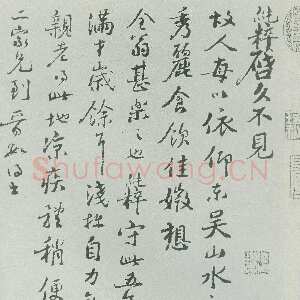 純粹啓久不見
故人每以依仰東吳山水
秀麗食飲佳媺想
全翁甚樂之純粹守此五
滿才歲餘耳淺拙自力
親老得此地涼疾體稍便
二家兄到晉
Shufawang.CN